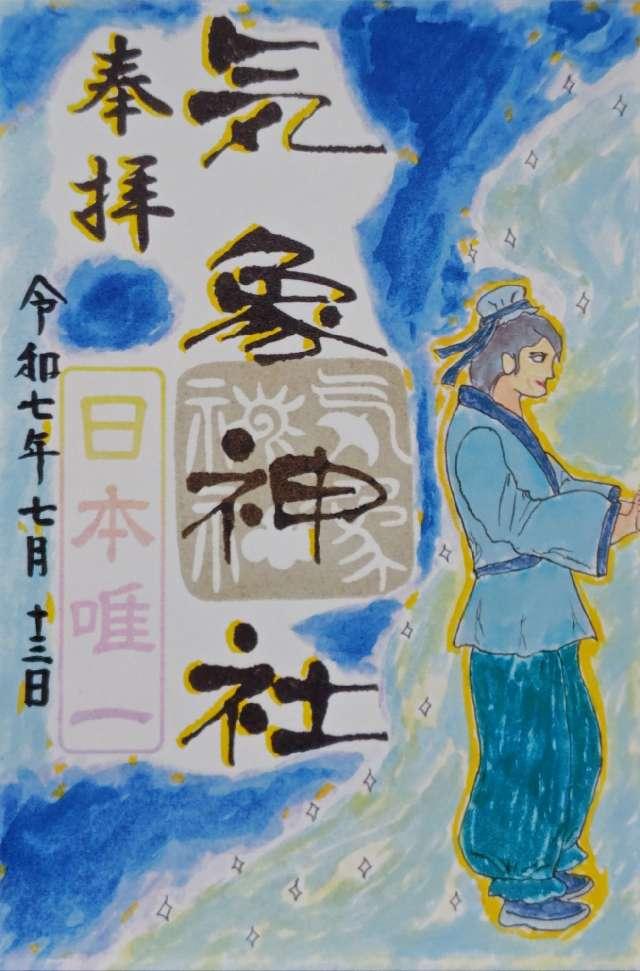 気象神社
奉拝
日本唯一
令和七年七月十三日
気象
神社